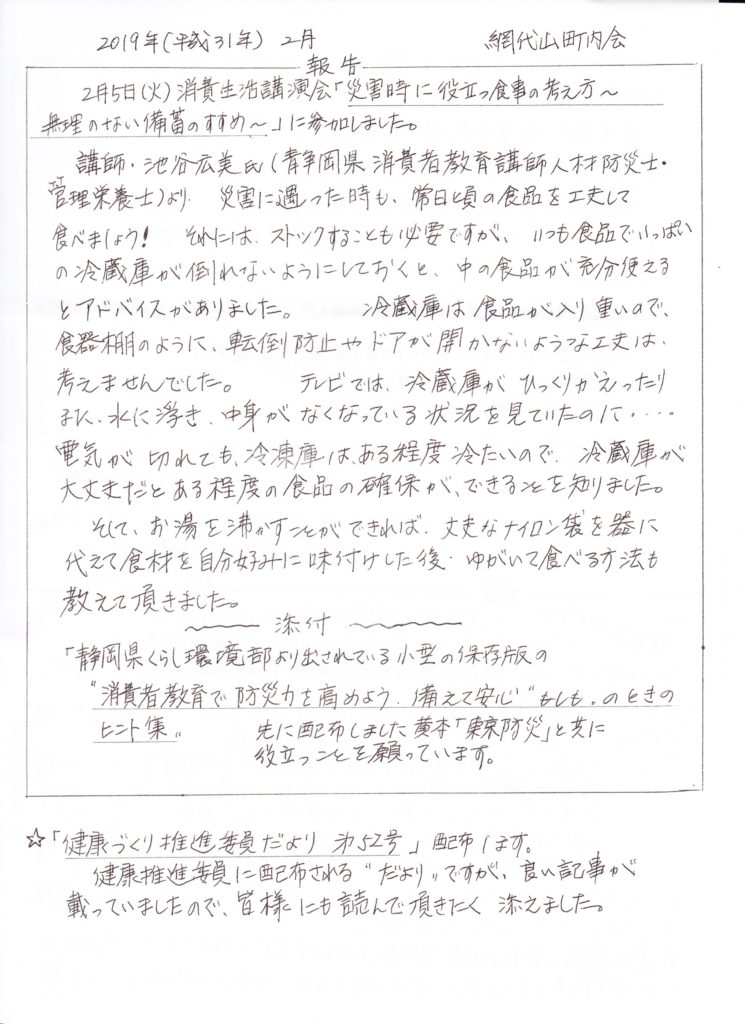 2019年(平成31年) 2月 網代山町内会
報告
2月5日(火)消費生活講演会「災害時に役立つ食事の考え方～
無理のない備蓄のすすめ～」に参加しました。
講師・池谷広美氏(静岡県消費者教育講師人材防災士・
管理栄養士)より、災害に遇った時も、常日頃の食品を工夫して
食べましょう! それには、ストックすることも必要ですが、いつも食品でいっぱい
の冷蔵庫が倒れないようにしておくと、中の食品が充分使える
とアドバイスがありました。 冷蔵庫は食品が入り重いので、
食器棚のように、転倒防止やドアが開かないような工夫は、
考えませんでした。 テレビでは、冷蔵庫がひっくりかえったり
また、水に浮き、中身がなくなっている状況を見ていたのに・・・・
電気が切れても、冷凍庫は、ある程度冷たいので、冷蔵庫が
大丈夫だとある程度の食品の確保が、できることを知りました。
そして、お湯を沸かすことができれば、丈夫なナイロン袋を器に
代えて食材を自分好みに味付けした後、ゆがいて食べる方法も
教えて頂きました。
添付
「静岡県くらし環境部より出されている小型の保存版の
"消費者教育で防災力を高めよう、備えて安心"もしも〟のときの
ヒント集〟 先に配布しました黄本「東京防災」と共に
役立つことを願っています。
☆「健康づくり推進委員だより 第52号」配布します。
健康推進委員に配布される〝だより〟ですが、良い記事が
載っていましたので、皆様にも読んで頂きたく 添えました。